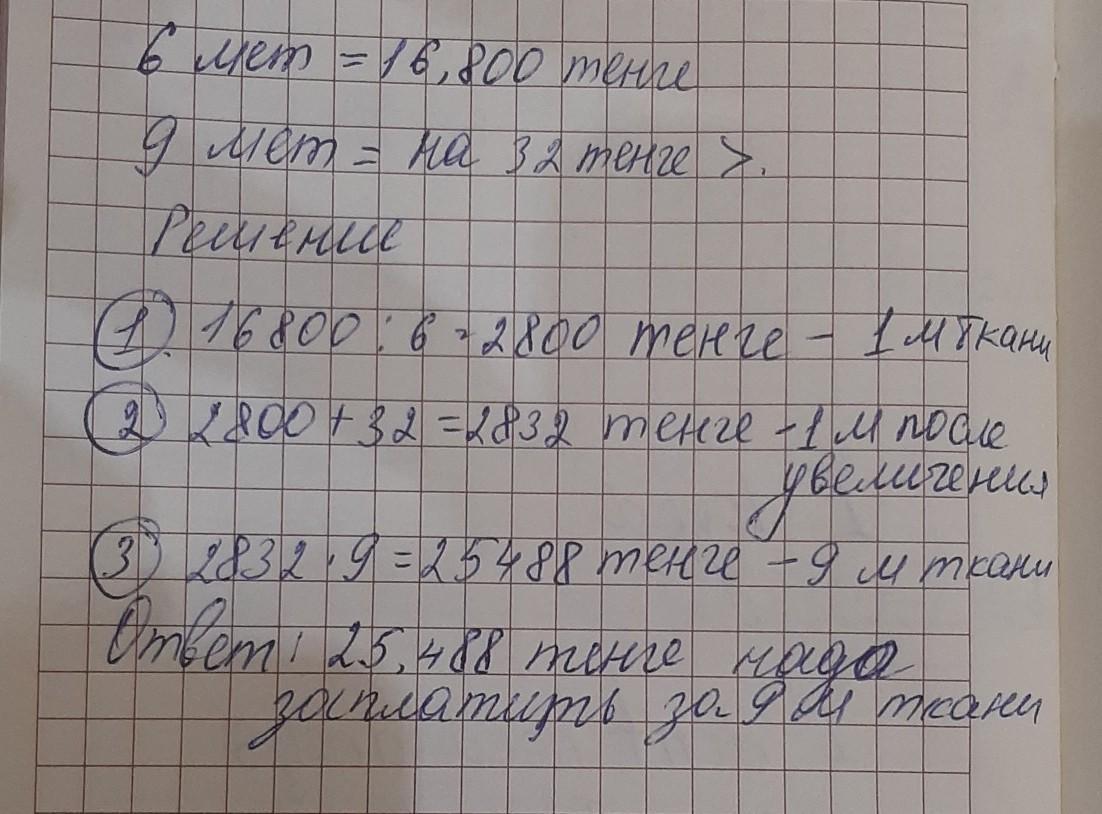 6 мет = 16,800 тенге
9 мет = на 32 тенге >.
Решение
1. 16800 : 6 = 2800 тенге - 1 м ткани
2 2800 + 32 = 2832 тенге - 1 м после
увеличения
3 2832 · 9 = 25488 тенге - 9 м ткани
Ответ: 25,488 тенге надо
заплатить за 9 м ткани